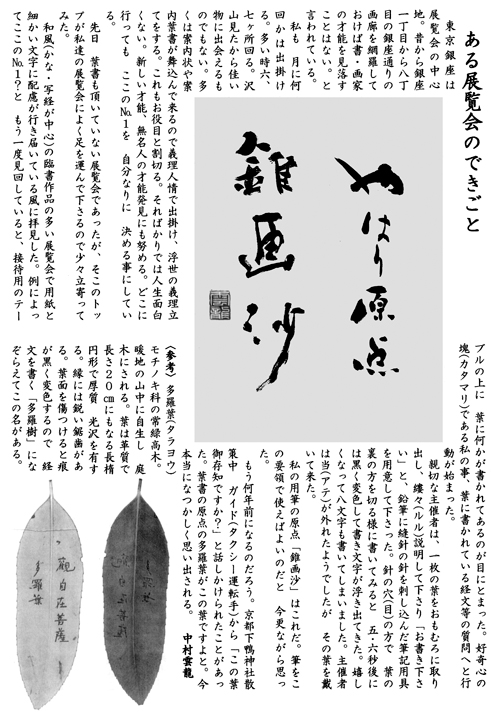 ある展覧会のできごと
東京 銀座は
展覧会の中心
地。昔から銀座
一丁目から八丁
目の銀座通りの
画廊を網羅して
おけば書・画家
の才能を見落す
ことはない。と
言われている。
私も 月に何
回かは出掛け
る。多い時六、
七ヶ所回る。沢
山見たから佳い
物に出会えるも
のでもない。多
くは案内状や案
内葉書が舞込んで来るので義理人情で出掛け、浮世の義理立
てをする。これもお役目と割切る。そればかりでは人生面白
くない。新しい才能、無名人の才能発見にも努める。どこに
行っても ここの№1を 自分なりに 決める事にしてい
る。
先日 葉書も頂いていない展覧会であったが、そこのトッ
プが私達の展覧会によく足を運んで下さるので少々立寄って
みた。
和風(かな・写経が中心)の臨書作品の多い展覧会で用紙と
細かい文字に配慮が行き届いている風に拝見した。例によっ
てここの№1?と もう一度見回していると、接待用のテー
やはり原点
錐画沙
ブルの上に 葉に何かが書かれてあるのが目にとまった。好奇心の
塊(カタマリ)である私の事、葉に書かれている経文等の質問へと行
動が始まった。
親切な主催者は、一枚の葉をおもむろに取り
出し、縷々(ルル)説明して下さり「お書き下さ
い」と、鉛筆に縫針の針を刺し込んだ筆記用具
を用意して下さった。針の穴(目)の方で 葉の
裏の方を切る様に書いてみると 五・六秒後に
は黒く変色して書き文字が浮き出てきた。嬉し
くなって八文字も書いてしまいました。主催者
は当(アテ)が外れたようでしたが その葉を戴
いて来た。
私の用筆の原点「錐画沙」はこれだ。筆をこ
の要領で使えばよいのだと 今更ながら思っ
た。
もう何年前になるのだろう。京都下鴨神社散
策中 ガイド(タクシー運転手)から「この葉
御存知ですか?」と話しかけられたことがあっ
た。葉書の原点の多羅葉がこの葉ですよと。今
本当になつかしく思い出される。 中村雲龍
《参考》 多羅葉(タラヨウ)
モチノキ科の常緑高木。
暖地の山中に自生し 庭
木にされる。葉は革質で
長さ20㎝にもなる長楕
円形で厚質 光沢を有す
る。縁には鋭い鋸歯があ
る。葉面を傷つけると痕
が黒く変色するので 経
文を書く「多羅樹」にな
ぞらえてこの名がある。
観自在菩薩
多羅葉